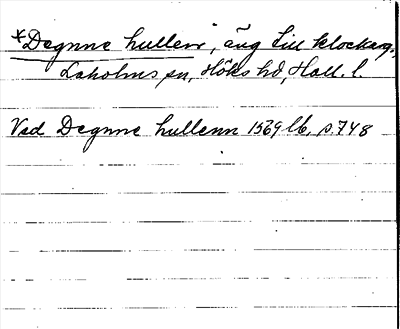 *Degnne hullenn, äng till klockareg.,
Laholms sn, Höks hd, Hall. l.
Ved Degnne hullenn 1569 lb, s. 748